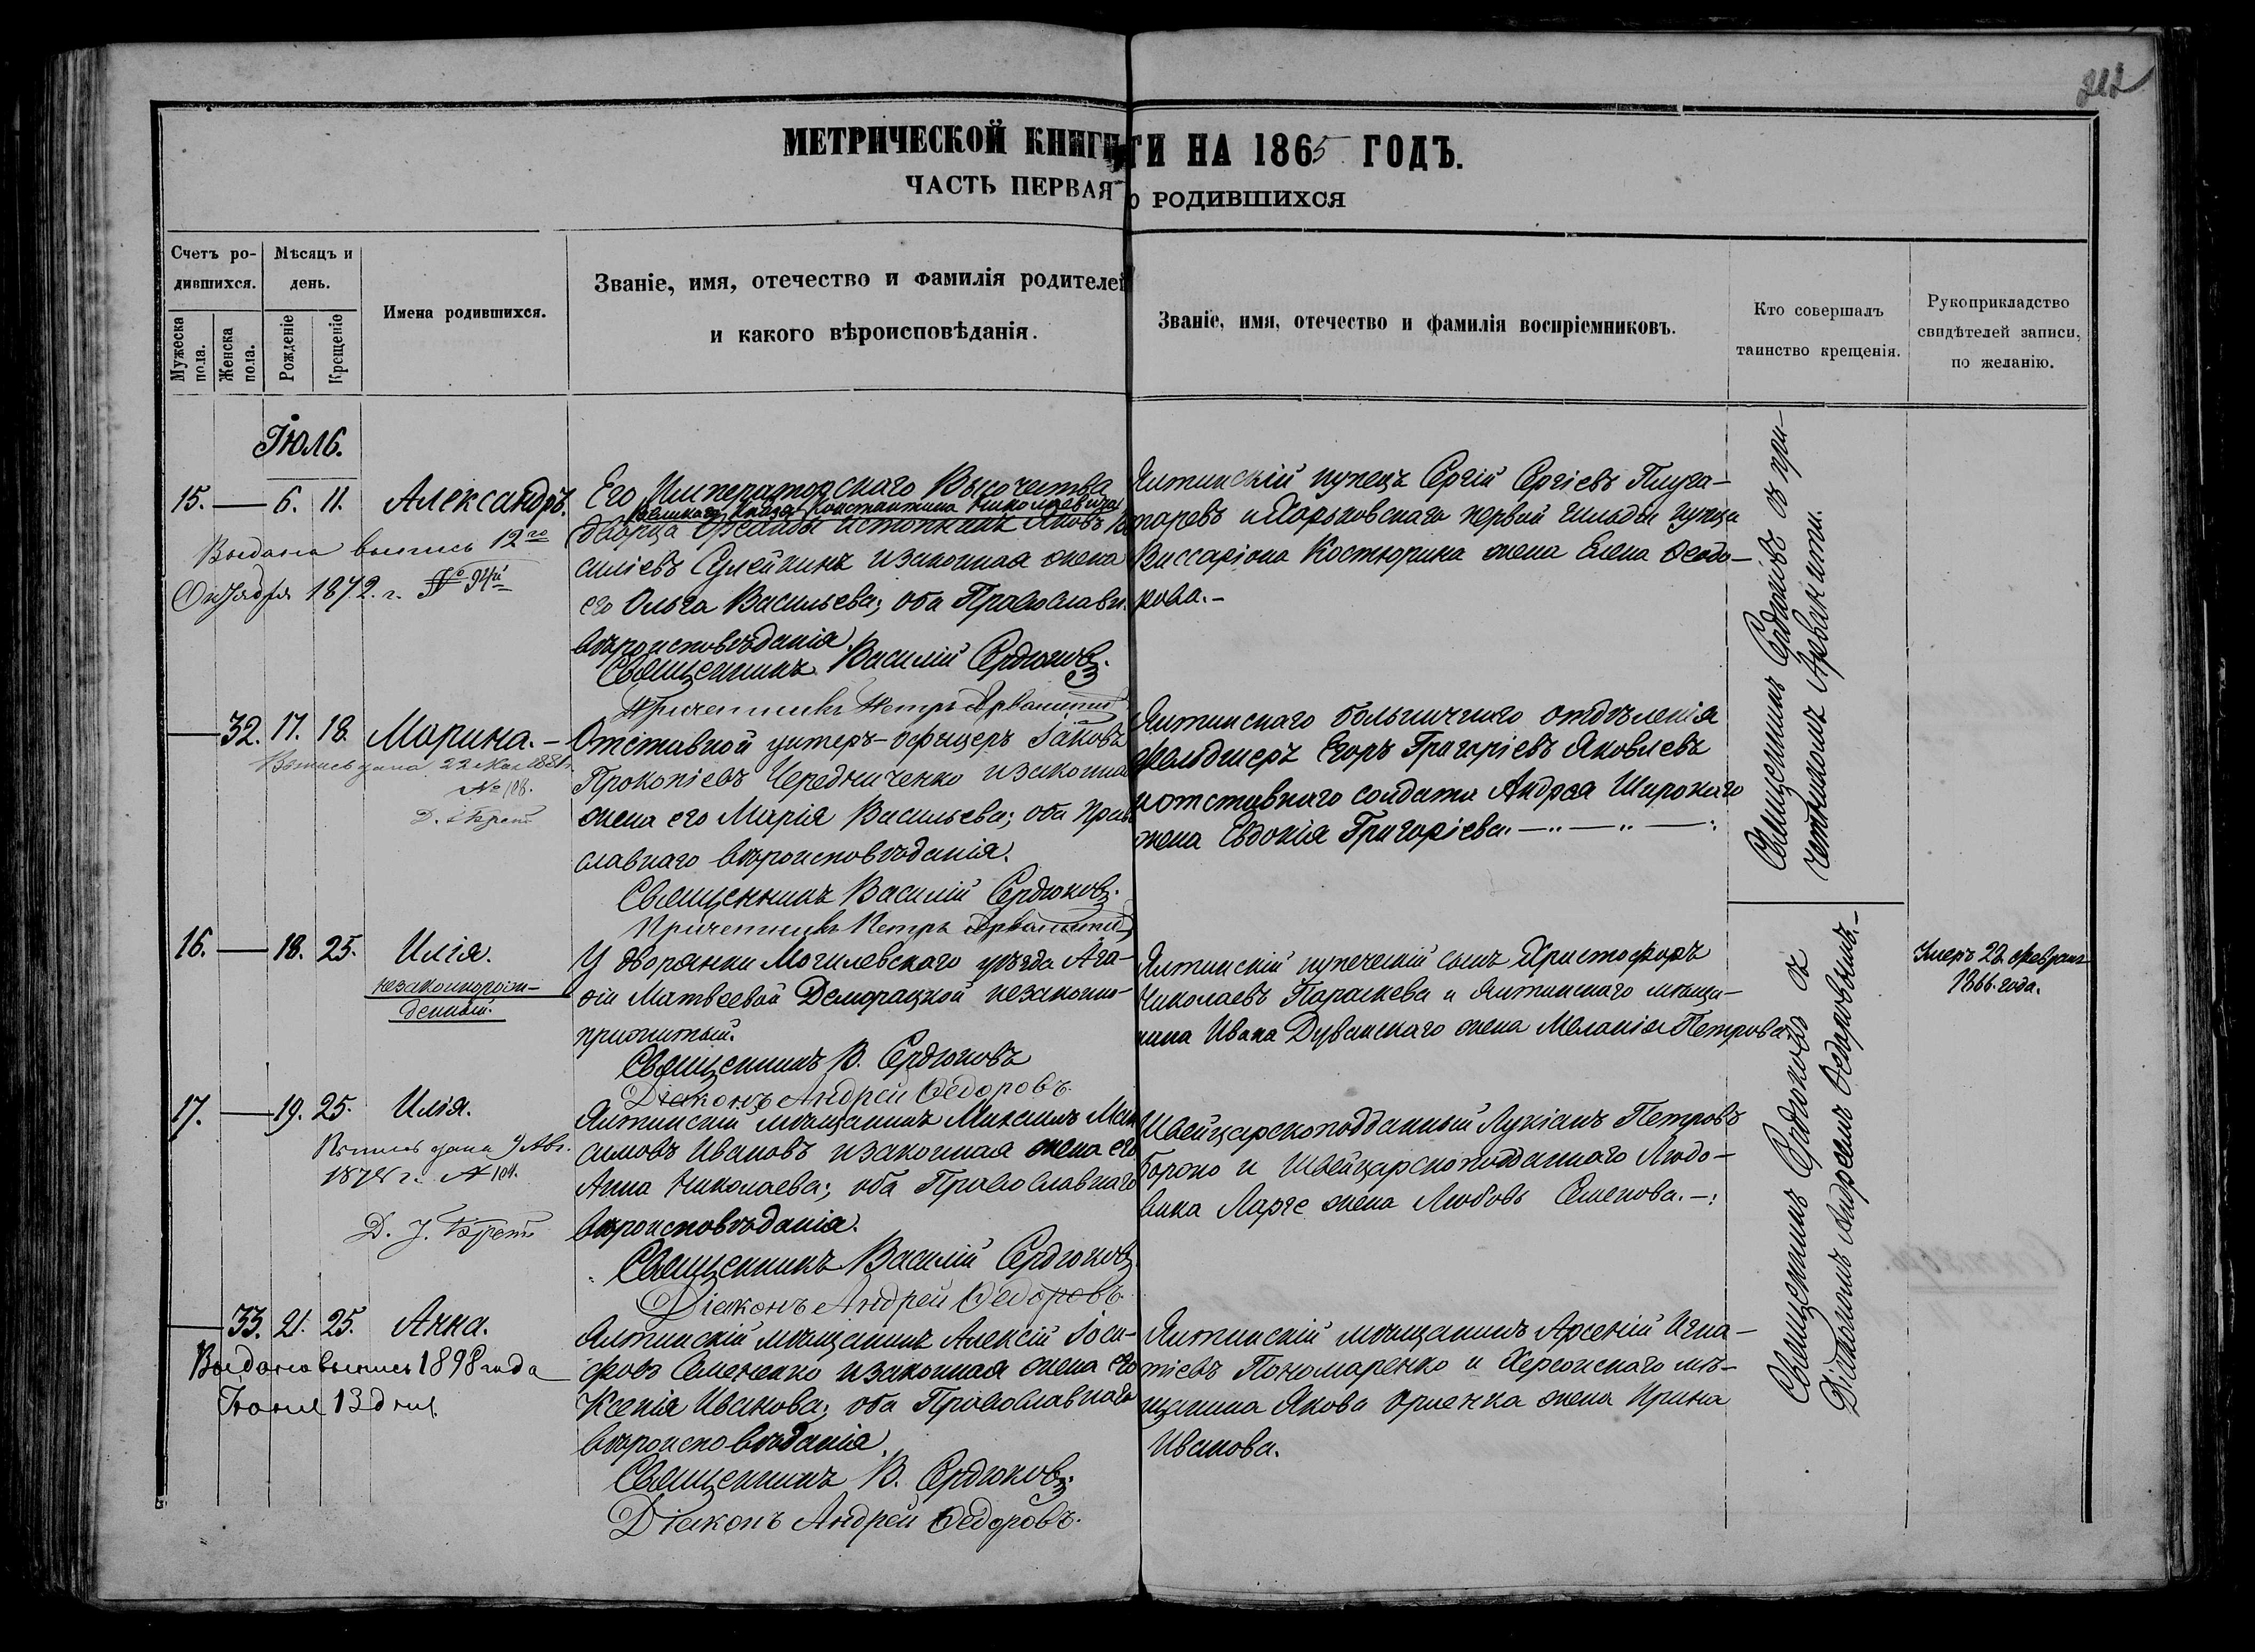 212
МЕТРИЧЕСКОЙ КНИГИ НА 1865 ГОДЪ.
ЧАСТЬ ПЕРВАЯ О РОДИВШИХСЯ
Счетъ ро-
дившихся.
Мужеска пола.
Женска пола.
Мѣсяцъ и
день.
Рожденіе
Крещеніе
Имена родившихся.
Званіе, имя, отечество и фамилія родителей
и какого вѣроисповѣданія.
Званіе, имя, отечество и фамилія воспріемниковъ.
Кто совершалъ
таинство крещенія.
Рукоприкладство
свидѣтелей записи,
по желанію.
Іюль.
15. — 6. 11. Александръ.
Выдана выпись 12го
Октября 1872. г.
Его Императорскаго Высочества
Великаго Князя Константина Николаевича
дворца Ореанды истопникъ Яковъ Ва-
силіевъ Сулейкинъ и законная жена
его Ольга Васильева; оба Православн.
вѣроисповѣданія.
Священникъ Василій Сердюковъ.
Причетникъ Петръ Арванити
Ялтинскій купецъ Сергій Сергіевъ Плуга-
таревъ и Харьковскаго первой гильдіи купца
Виссаріона Костюрина жена Елена Ѳеодо-
рова.-
— 32. 17. 18. Марина. -
Выпись дана 22 Мая 1881г.
№ 108.
Отставной унтеръ-офицеръ Іаковъ
Прокопіевъ Чередниченко и законная
жена его Марія Васильева; оба Право-
славнаго вѣроисповѣданія.
Священникъ Василій Сердюковъ.
Причетникъ Петръ Арванити
Ялтинскаго больничнаго отдѣленія
фельдшеръ Егоръ Григоріевъ Яковлевъ
и отставнаго солдата Андрея Широкаго
жена Евдокія Григоріева.
Священникъ Сердюковъ съ при-
четникомъ Арванити.
16. — 18. 25. Илія.
незаконнорож-
денный.
У дворянки Могилевскаго уѣзда Ага-
ѳіи Матвеевой Деморацкой незаконно-
прижитый.
Священникъ В. Сердюковъ
Діаконъ Андрей Ѳедоровъ.
Ялтинскій купеческій сынъ Христофоръ
Николаевъ Параскева и Ялтинскаго мѣща-
нина Ивана Дуванскаго жена Меланія Петрова
Умеръ 22 февраля
1866. года.
17. — 19. 25. Илія.
Выпись дана 9 Авг.
1878 г. № 101.
Ялтинскій мѣщанинъ Максимъ Мак-
симовъ Ивановъ и законная жена его
Анна Николаева; оба Православнаго
вѣроисповѣданія.
Священникъ Василій Сердюковъ
Діаконъ Андрей Ѳедоровъ.
Швейцарскоподданный Лукіанъ Петровъ
Бороно и Швейцарскоподданнаго Людо-
вика Ларге жена Любовь Семенова. -:
— 33. 21. 25. Анна.
Выдана выпись 1898 года
Іюня 13 дня
Ялтинскій мѣщанинъ Алексій Іоси-
фовъ Семененко и законная жена его
Ксенія Иванова; оба Православнаго
вѣроисповѣданія.
Священникъ В. Сердюковъ.
Діаконъ Андрей Ѳедоровъ.
Ялтинскій мѣщанинъ Арсеній Игна-
тіевъ Пономаренко и Херсонскаго мѣ-
щанина Якова жена Ирина
Иванова.
Священникъ Сердюковъ съ
Діакономъ Андреемъ Ѳедоровымъ.-